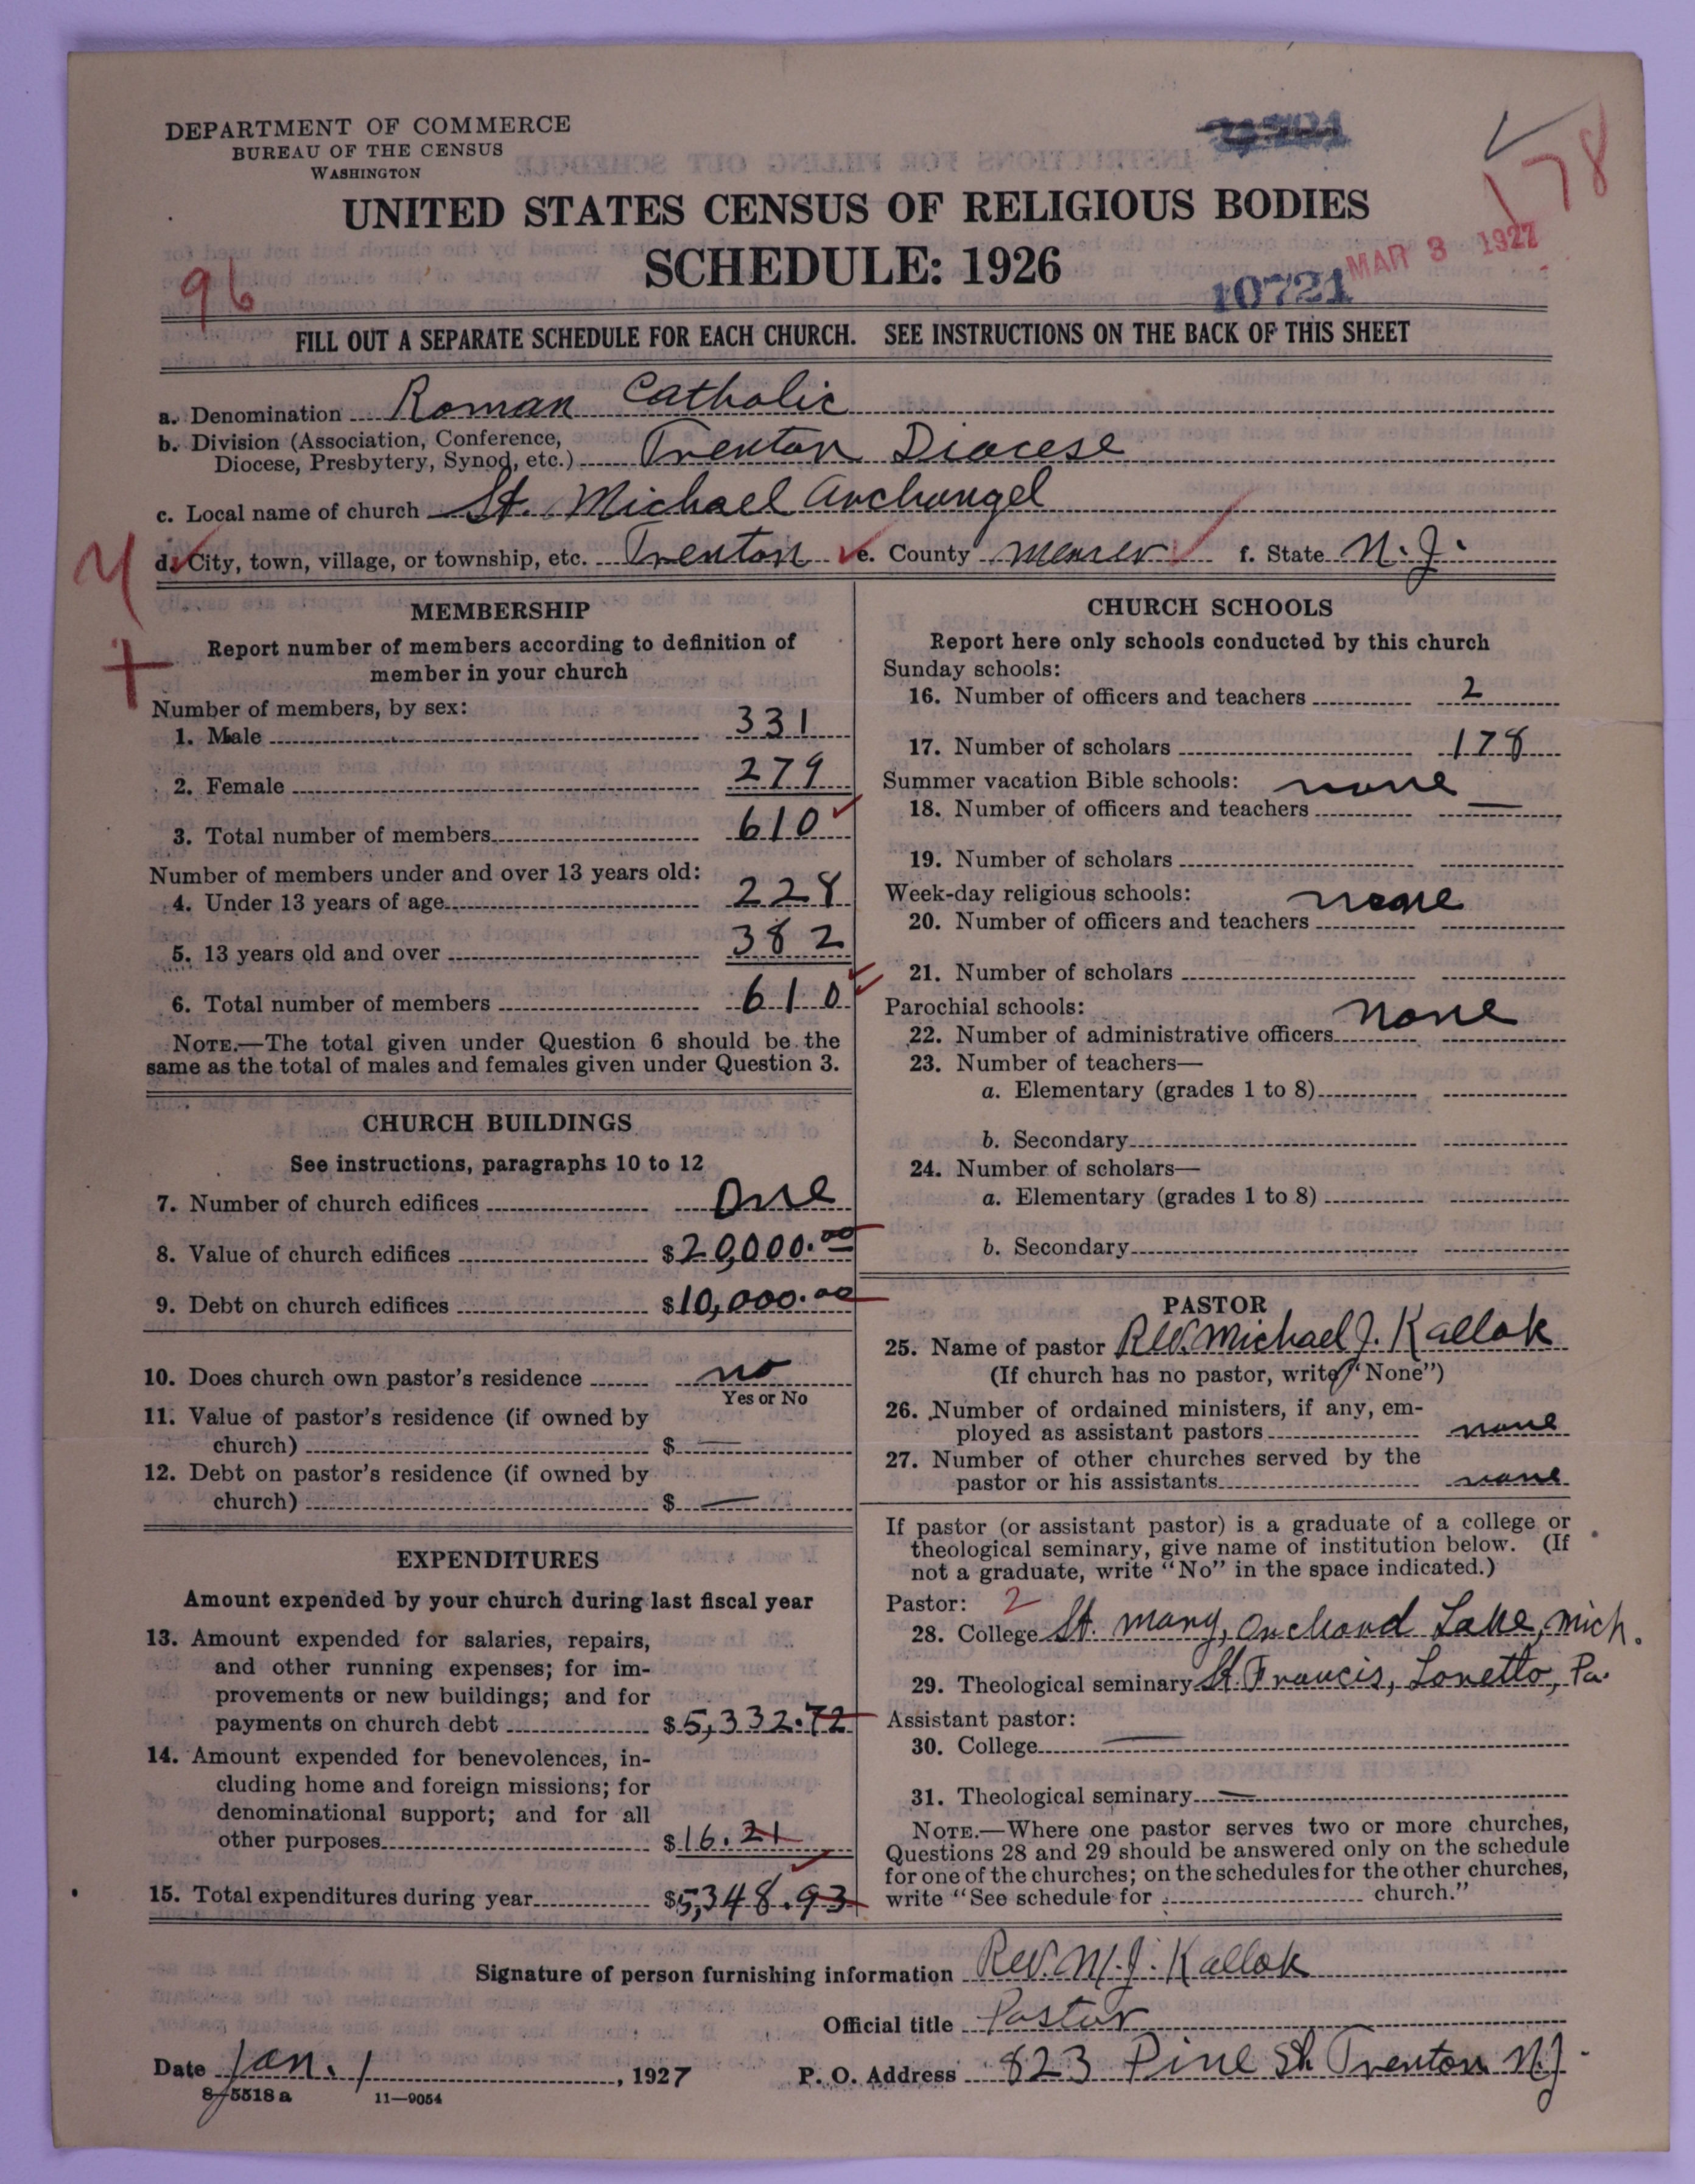 DEPARTMENT OF COMMERCE
BUREAU OF THE CENSUS
WASHINGTON
UNITED STATES CENSUS OF RELIGIOUS BODIES
SCHEDULE: 1926
178
MAR 3 1927
10721
96
FILL OUT A SEPARATE SCHEDULE FOR EACH CHURCH. SEE INSTRUCTIONS ON THE BACK OF THIS SHEET
a. Denomination Roman Catholic
b. Division (Association, Conference,
Diocese, Presbytery, Synod, etc.) Trenton Diocese
c. Local name of church St. Michael Archangel
d. City, town, village, or township, etc. Trenton e. County Mercer f. State N. J.
MEMBERSHIP
Report number of members according to definition of
member in your church
Number of members, by sex:
1. Male 331
2. Female 279
3. Total number of members 610
Number of members under and over 13 years old:
4. Under 13 years of age 228
5. 13 years old and over 382
6. Total number of members 610
NOTE.—The total given under Question 6 should be the
same as the total of males and females given under Question 3.
CHURCH BUILDINGS
See instructions, paragraphs 10 to 12
7. Number of church edifices One
8. Value of church edifices $20,000.00
9. Debt on church edifices $10,000.00
10. Does church own pastor's residence no
Yes or No
11. Value of pastor's residence (if owned by
church) $ —
12. Debt on pastor's residence (if owned by
church) $ —
EXPENDITURES
Amount expended by your church during last fiscal year
13. Amount expended for salaries, repairs,
and other running expenses; for im-
provements or new buildings; and for
payments on church debt $5,332.72
14. Amount expended for benevolences, in-
cluding home and foreign missions; for
denominational support; and for all
other purposes $16.21
15. Total expenditures during year $5,348.93
CHURCH SCHOOLS
Report here only schools conducted by this church
Sunday schools:
16. Number of officers and teachers 2
17. Number of scholars 178
Summer vacation Bible schools: none
18. Number of officers and teachers —
19. Number of scholars
Week-day religious schools: none
20. Number of officers and teachers
21. Number of scholars
Parochial schools: none
22. Number of administrative officers
23. Number of teachers—
a. Elementary (grades 1 to 8)
b. Secondary
24. Number of scholars—
a. Elementary (grades 1 to 8)
b. Secondary
PASTOR
25. Name of pastor Rev. Michael J. Kallok
(If church has no pastor, write "None")
26. Number of ordained ministers, if any, em-
ployed as assistant pastors none
27. Number of other churches served by the
pastor or his assistants none
If pastor (or assistant pastor) is a graduate of a college or
theological seminary, give name of institution below. (If
not a graduate, write "No" in the space indicated.)
Pastor: 2
28. College St. Mary, Orchard Lake, Mich.
29. Theological seminary St. Francis, Loretto, Pa.
Assistant pastor:
30. College —
31. Theological seminary —
NOTE.—Where one pastor serves two or more churches,
Questions 28 and 29 should be answered only on the schedule
for one of the churches; on the schedules for the other churches,
write "See schedule for church."
Signature of person furnishing information Rev. M. J. Kallok
Official title Pastor
Date Jan. 1, 1927 P. O. Address 823 Pine St. Trenton N.J.
8-5518 a 11—9054